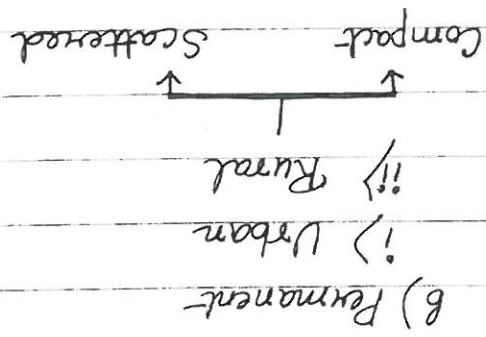 B) Permanent
i) Urban
ii) Rural
Compact Scattered